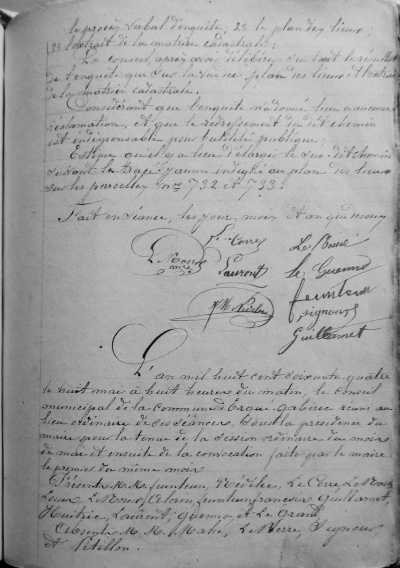 le procès verbal d'enquête; 2§ le plan des lieux;
3§ l'extrait de la matrice cadastrale;
Le conseil après avoir délibéré, sur tant le résultat
de l'enquête que sur la vue des plan des lieux et l'extrait
de la matrice cadastrale.
Considérant que l'enquête n'a donné lieu a aucune
réclamation, et que le redressement du dit chemin
est indispensable pour l'utilité publique.
Estime qu'il y a lieu d'élargir le sus-dit chemin
suivant le tracé jaune indiqué au plan des lieux
sur les parcelles nos 732 et 733.
Fait en séance, les jour, mois et an que dessus
Le Corre
Laurent
Le Guenno
feunteun
signour
Guillamet
L'an mil huit cent soixante quatre
le huit mai à huit heures du matin, le Conseil
municipal de la commune d'Ergué-Gabéric réuni au
lieu ordinaire de ses séances, sous la présidence du
maire pour la tenue de la session ordinaire du mois
de mai et ensuite de la convocation faite par le maire
le premier du même mois.
Présents M.M. feunteun, Nédélec, Le Corre, Le
feunteun françois, Guillamet,
Huitric, Laurent, Guenno, et Le Grand
Absents M.M. Mahé, Le Berre, Signour,
et Pétillon.